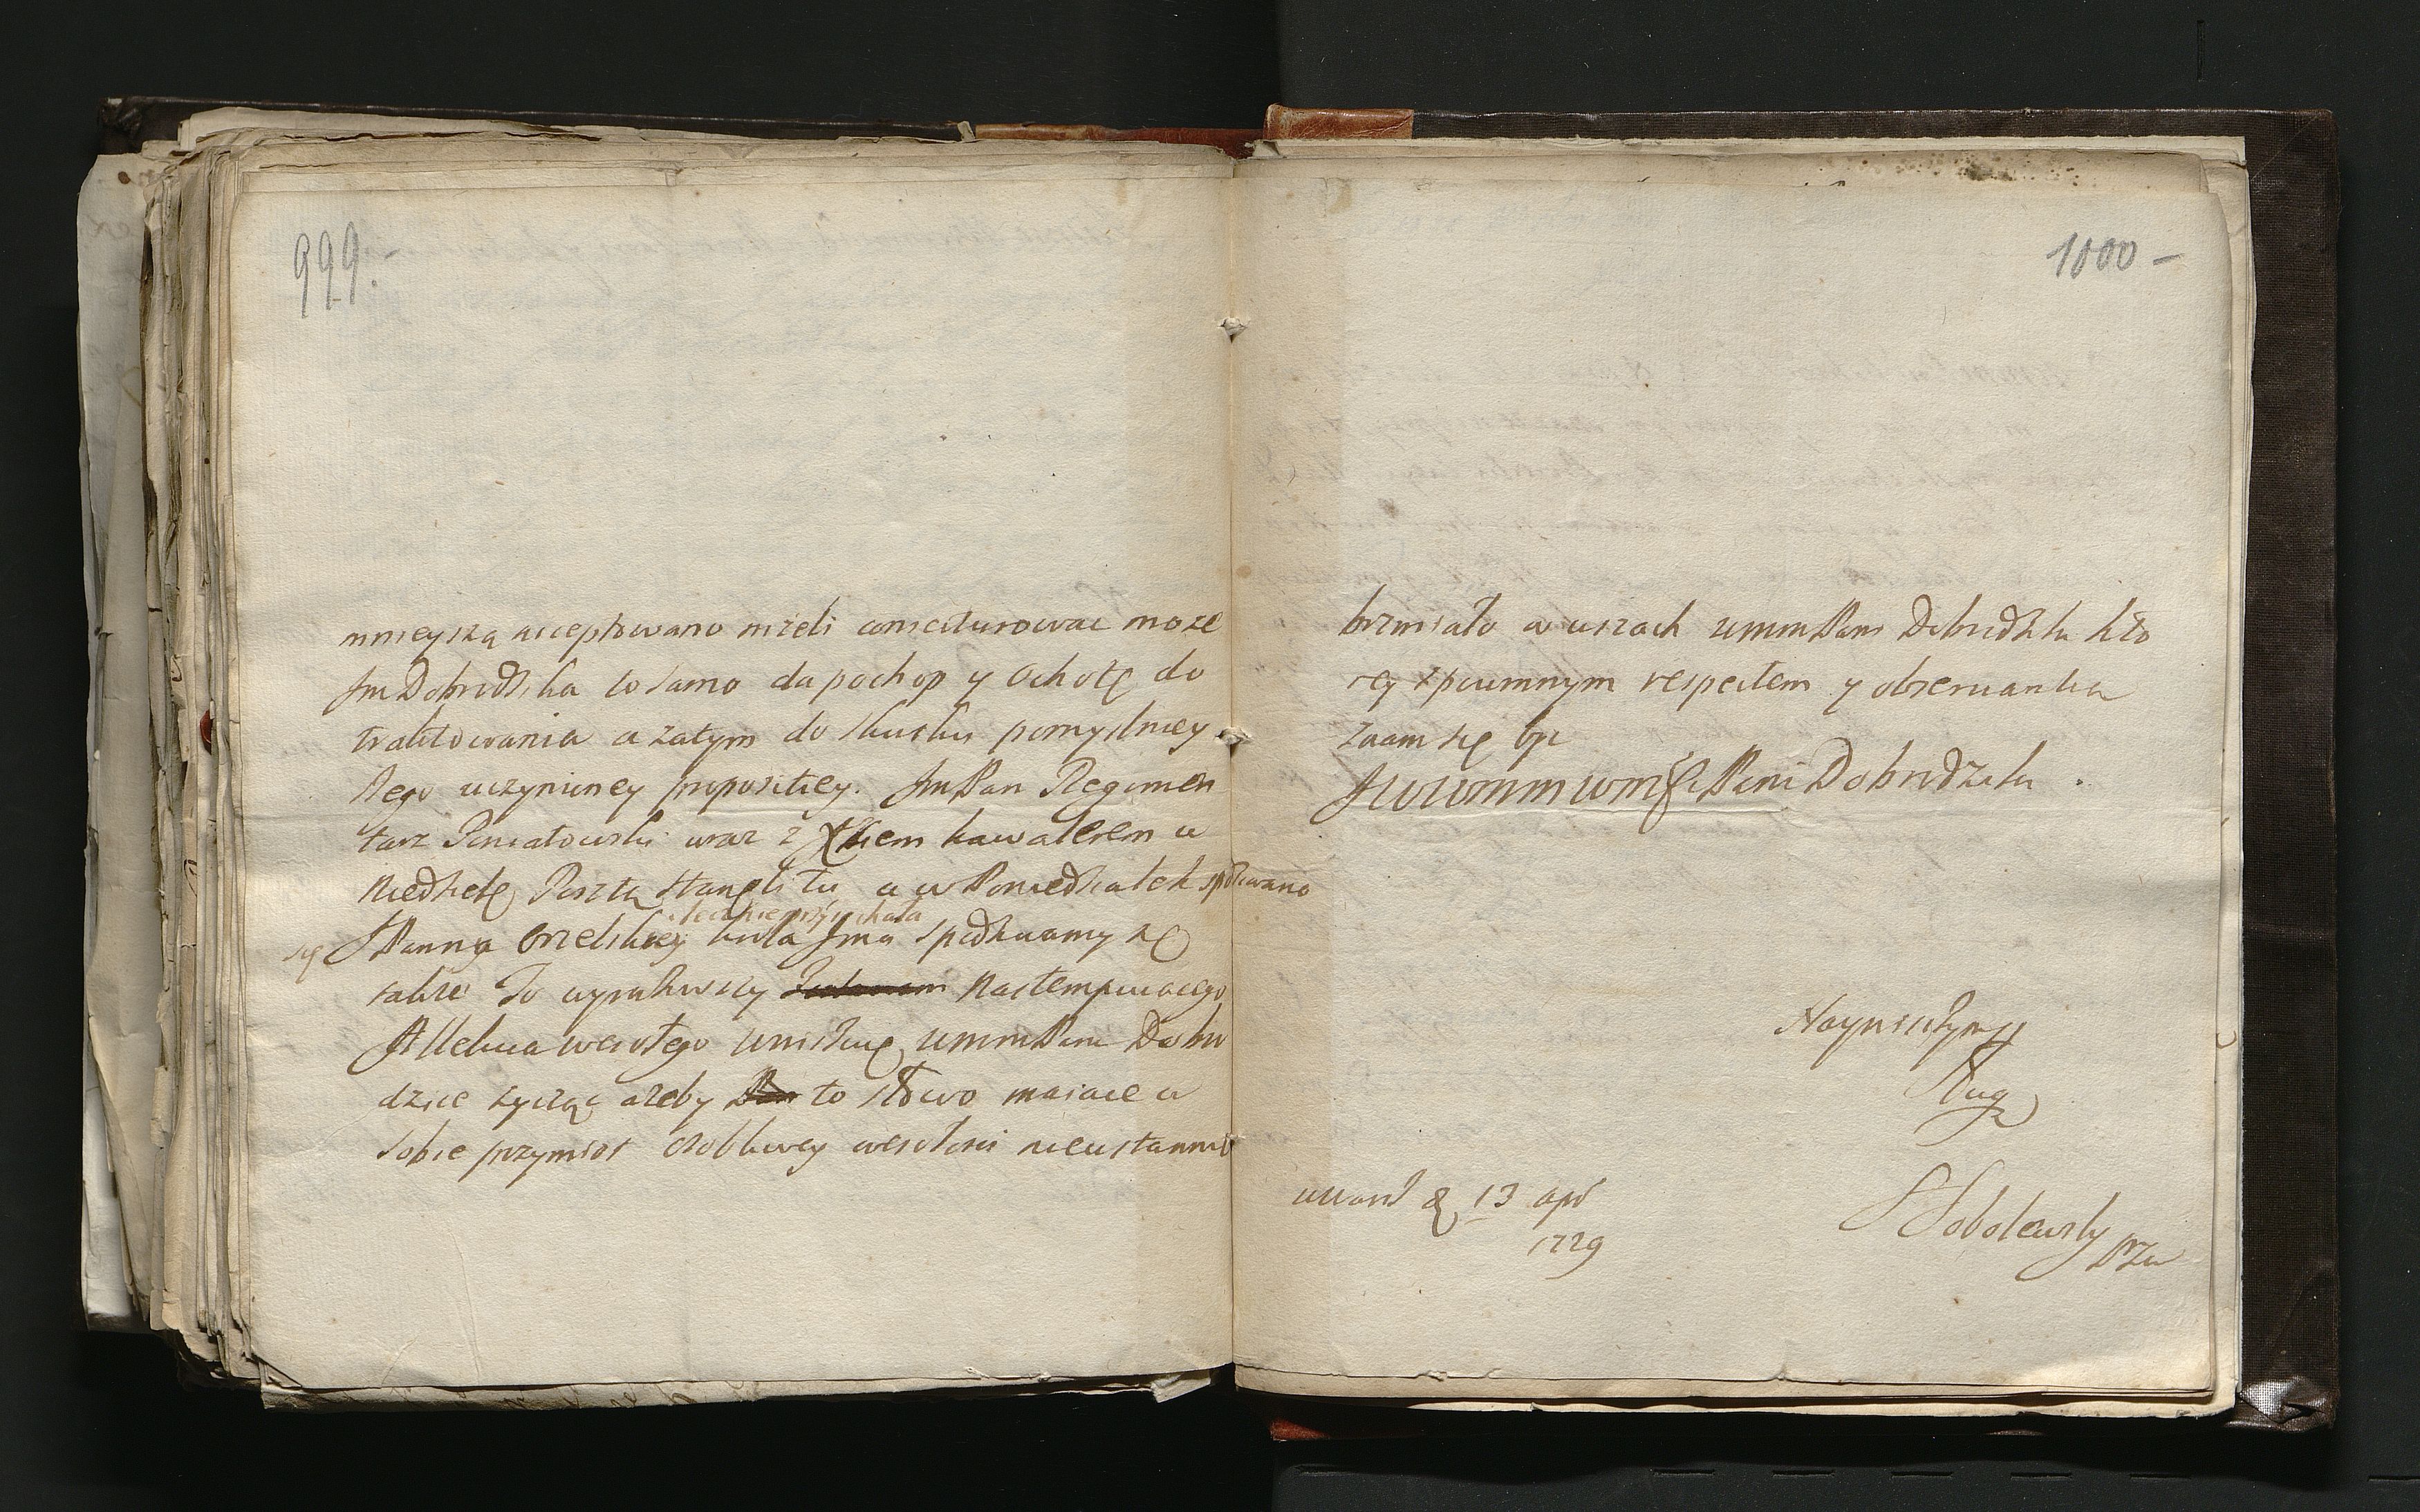 999.-
mnieyszą acceptowano niżeli coniecturowac może
Jm Dobrodzika to samo da pochop y Ochotę do
traktowania a zatym do skutku pomyslney
Nego uczynioney propozitiey. Jm Pan Regimen
tarz Poniatowski wraz z Xkiem kawalerem w
Niedzielę Poszta stanęli tu a w Poniedziałek spodziewano
się JPanny Orzelskiey lecz nie przyiechała Jma spodziewamy się
także To wyraziwszy Nastempuiacego
Alleluia wesołego winszuię WmmPani Dobro
dzice życząc ażeby to słowo maiace w
sobie przymiot osobliwey wesołosci nieustannie
1000 -
brzmiało w uszach WmmPani Dobrodziki kto
rey z powinnym respektem y obserwantia
znam się byc
JWWmm WmsPani Dobrodziki.
Nayniższym
Sługą
w Warsz d 13 apr
1729
S Sobolewsky